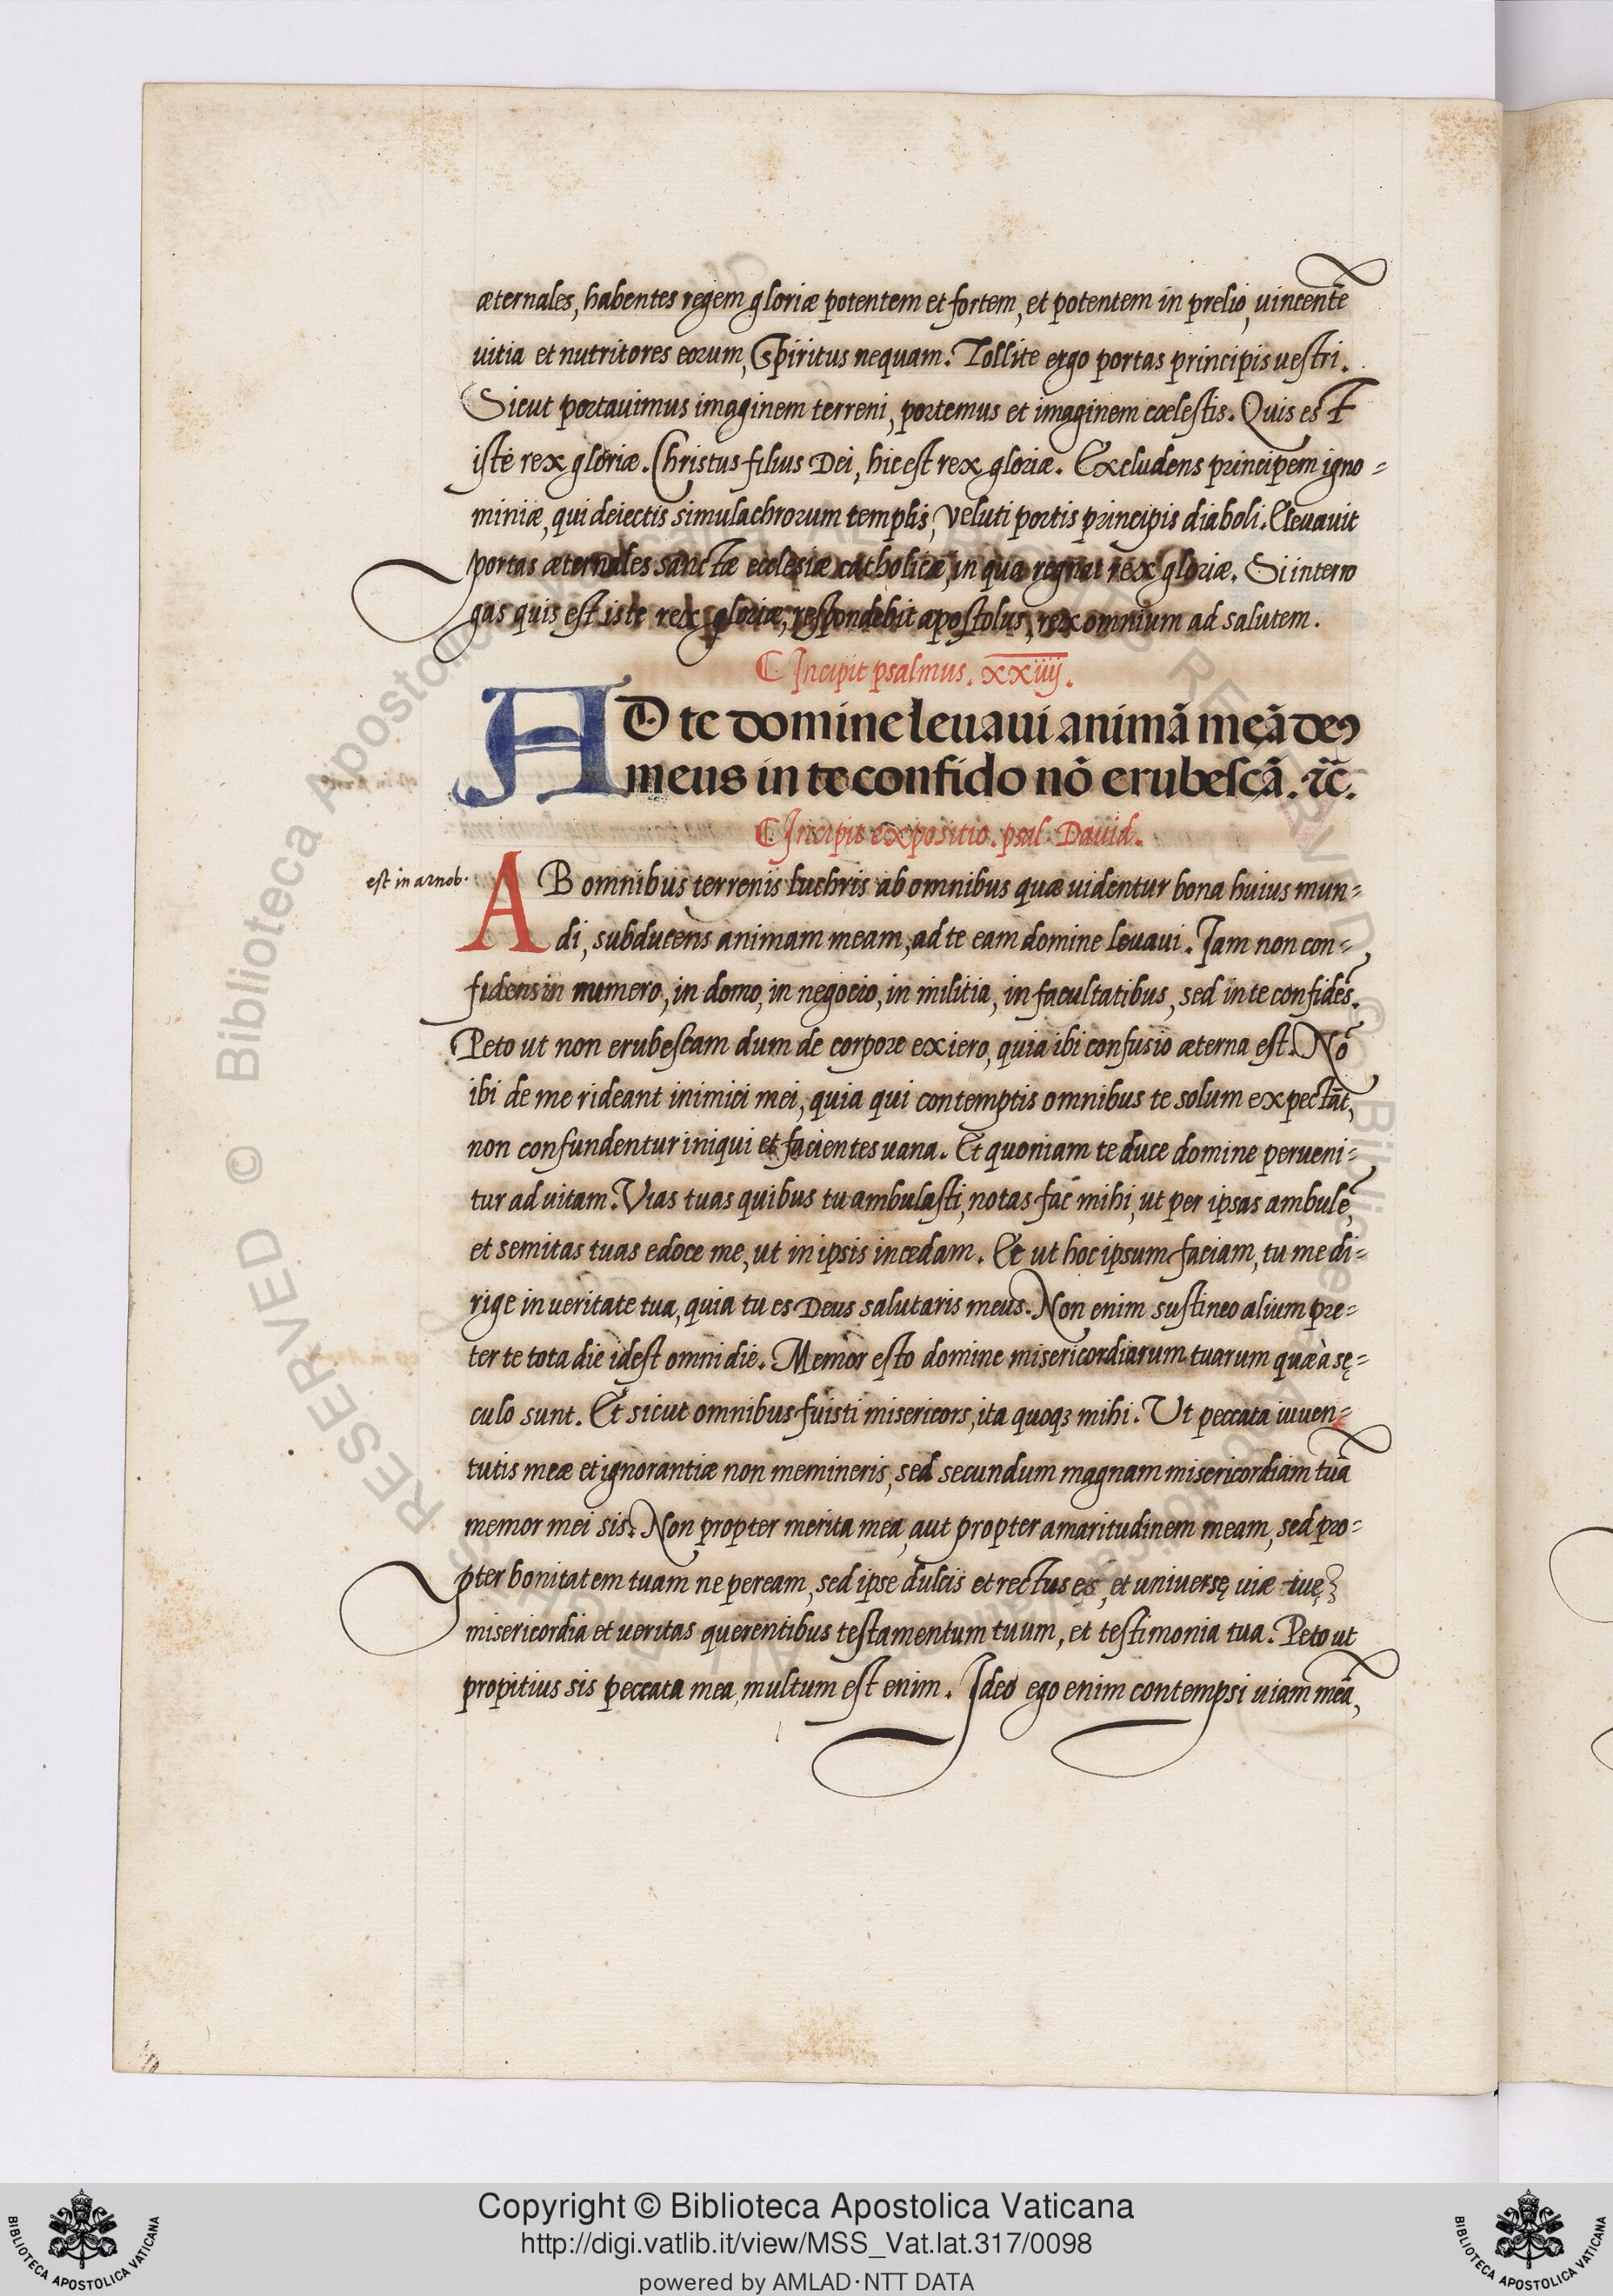 æternales, habentes regem gloriæ potentem et fortem, et potentem in prelio, uincentē
uitia et nutritores eorum, Spiritus nequam. Tollite ergo portas principis uestri.
Sicut portauimus imaginem terreni, portemus et imaginem cælestis. Quis est
iste rex gloriæ. Christus filius Dei, hic est rex gloriæ. Excludens principem igno=
miniæ, qui deiectis simulachrorum templis, veluti portis principis diaboli. Eleuauit
portas æternales sanctæ ecclesiæ catholicæ, in qua regnat rex gloriæ. Si interro
gas quis est iste rex gloriæ, respondebit apostolus, rex omnium ad salutem.
Incipit psalmus. xxiiij.
AD te domine leuaui animā meā deꝰ
meus in te confido nō erubescā. ⁊c̄.
Incipit expositio. psal. Dauid.
est in arnob.
AB omnibus terrenis luchris ab omnibus quæ uidentur bona huius mun=
di, subducens animam meam, ad te eam domine leuaui. Iam non con=
fidens in numero, in domo, in negocio, in militia, in facultatibus, sed in te confidēs.
Peto ut non erubescam dum de corpore exiero, quia ibi confusio æterna est. Nō
ibi de me rideant inimici mei, quia qui contemptis omnibus te solum expectāt,
non confundentur iniqui et facientes uana. Et quoniam te duce domine perueni=
tur ad uitam. Vias tuas quibus tu ambulasti, notas fac mihi, ut per ipsas ambulē,
et semitas tuas edoce me, ut in ipsis incedam. Et ut hoc ipsum faciam, tu me di=
rige in ueritate tua, quia tu es Deus salutaris meus. Non enim sustineo alium pre=
ter te tota die idest omni die. Memor esto domine misericordiarum tuarum quæ à sę=
culo sunt. Et sicut omnibus fuisti misericors, ita quoqꝫ mihi. Ut peccata iuuen=
tutis meæ et ignorantiæ non memineris, sed secundum magnam misericordiam tuā
memor mei sis. Non propter merita mea, aut propter amaritudinem meam, sed pro=
pter bonitatem tuam ne peream, sed ipse dulcis et rectus es, et universę uiæ tuę
misericordia et ueritas querentibus testamentum tuum, et testimonia tua. Peto ut
propitius sis peccata mea, multum est enim. Ideo ego enim contempsi uiam meā,
Copyright © Biblioteca Apostolica Vaticana
http://digi.vatlib.it/view/MSS_Vat.lat.317/0098
powered by AMLAD·NTT DATA